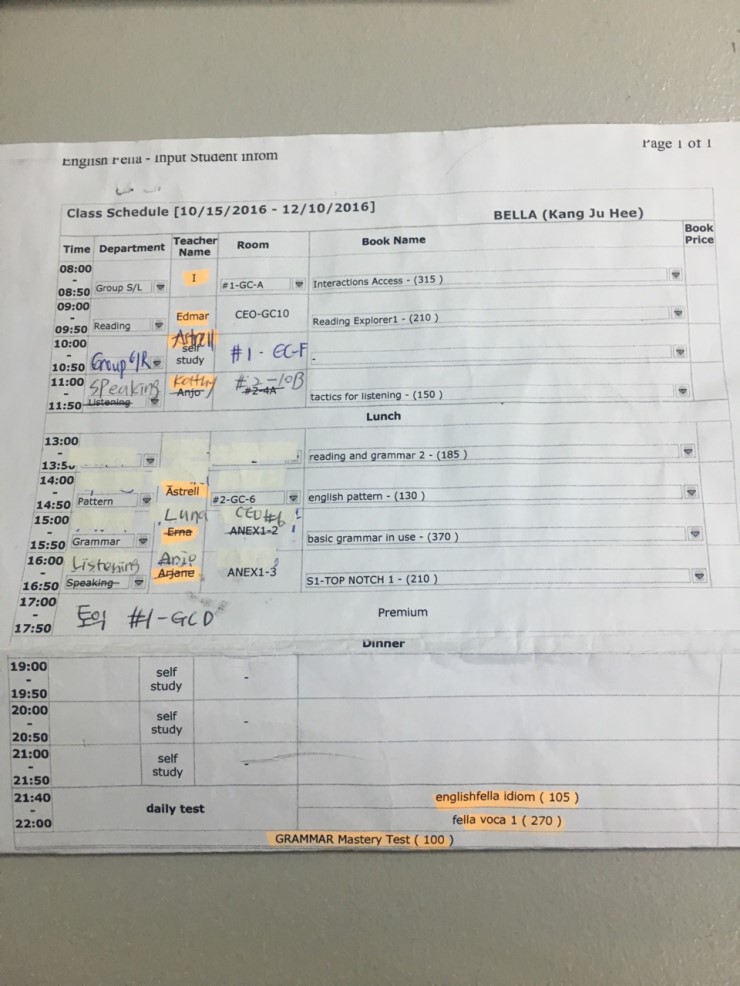 English Fella - Input Student Infom
Page 1 of 1
Class Schedule [10/15/2016 - 12/10/2016]
BELLA (Kang Ju Hee)
Time Department Teacher Name Room Book Name Book Price
08:00 - 08:50 Group S/L I #1-GC-A Interactions Access - (315)
09:00 - 09:50 Reading Edmar CEO-GC10 Reading Explorer1 - (210)
10:00 - 10:50 Group G/R Astrell self study #1 - GC-F -
11:00 - 11:50 Speaking Listening Kathy Anjo #2-10B #2-4A tactics for listening - (150)
Lunch
13:00 - 13:50 reading and grammar 2 - (185)
14:00 - 14:50 Pattern Astrell #2-GC-6 english pattern - (130)
15:00 - 15:50 Grammar Luna Erna CEO#6 ANEX1-2 basic grammar in use - (370)
16:00 - 16:50 Listening Speaking Anjo Arjane ANEX1-3 S1-TOP NOTCH 1 - (210)
17:00 - 17:50 토익 #1-GCD Premium
Dinner
19:00 - 19:50 self study -
20:00 - 20:50 self study -
21:00 - 21:50 self study -
21:40 - 22:00 daily test englishfella idiom ( 105 )
fella voca 1 ( 270 )
GRAMMAR Mastery Test ( 100 )